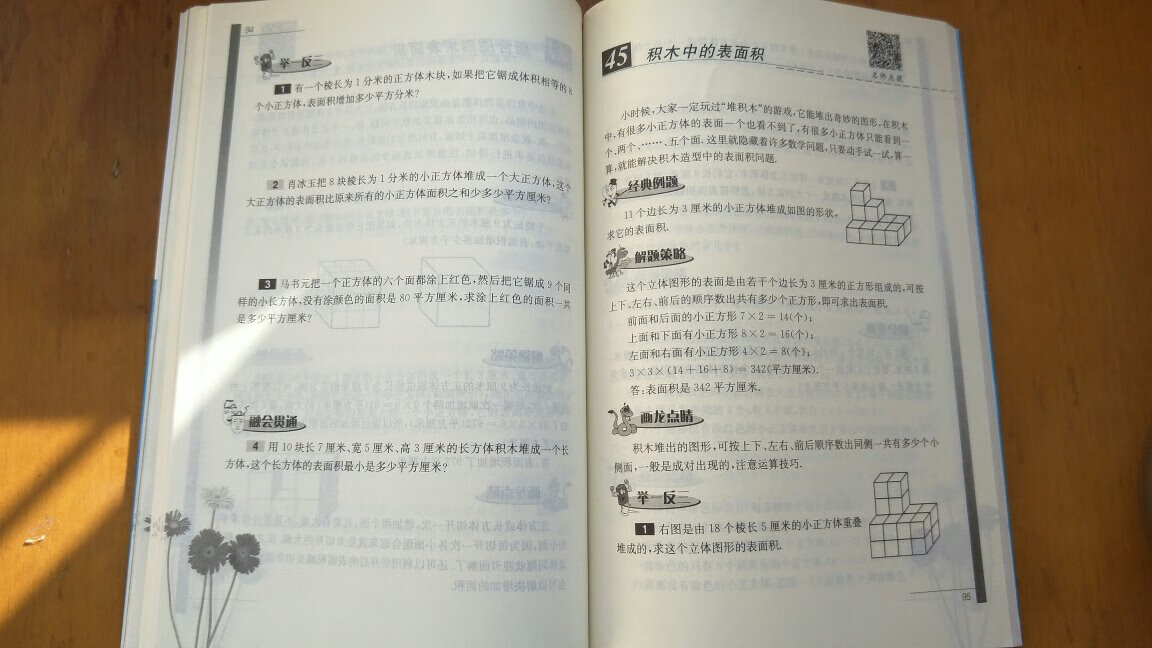 94
举一反三
1 有一个棱长为1分米的正方体木块,如果把它锯成体积相等的8
个小正方体,表面积增加多少平方分米?
2 肖冰玉把8块棱长为1分米的小正方体堆成一个大正方体,这个
大正方体的表面积比原来所有的小正方体面积之和少多少平方厘米?
3 马书元把一个正方体的六个面都涂上红色,然后把它锯成9个同
样的小长方体,没有涂颜色的面积是80平方厘米,求涂上红色的面积一共
是多少平方厘米?
融会贯通
4 用10块长7厘米、宽5厘米、高3厘米的长方体积木堆成一个长
方体,这个长方体的表面积最小是多少平方厘米?
45 积木中的表面积
名师点拨
小时候,大家一定玩过“堆积木”的游戏,它能堆出奇妙的图形,在积木
中,有很多小正方体的表面一个也看不到了,有很多小正方体只能看到一
个、两个、……、五个面.这里就隐藏着许多数学问题,只要动手试一试,算一
算,就能解决积木造型中的表面积问题.
经典例题
11个边长为3厘米的小正方体堆成如图的形状,
求它的表面积.
解题策略
这个立体图形的表面是由若干个边长为3厘米的正方形组成的,可按
上下、左右、前后的顺序数出共有多少个正方形,即可求出表面积.
前面和后面的小正方形7×2=14(个);
上面和下面有小正方形8×2=16(个);
左面和右面有小正方形4×2=8(个);
3×3×(14+16+8)=342(平方厘米).
答:表面积是342平方厘米.
画龙点睛
积木堆出的图形,可按上下、左右、前后顺序数出同侧一共有多少个小
侧面,一般是成对出现的,注意运算技巧.
举一反三
1 右图是由18个棱长5厘米的小正方体重叠
堆成的,求这个立体图形的表面积.
95